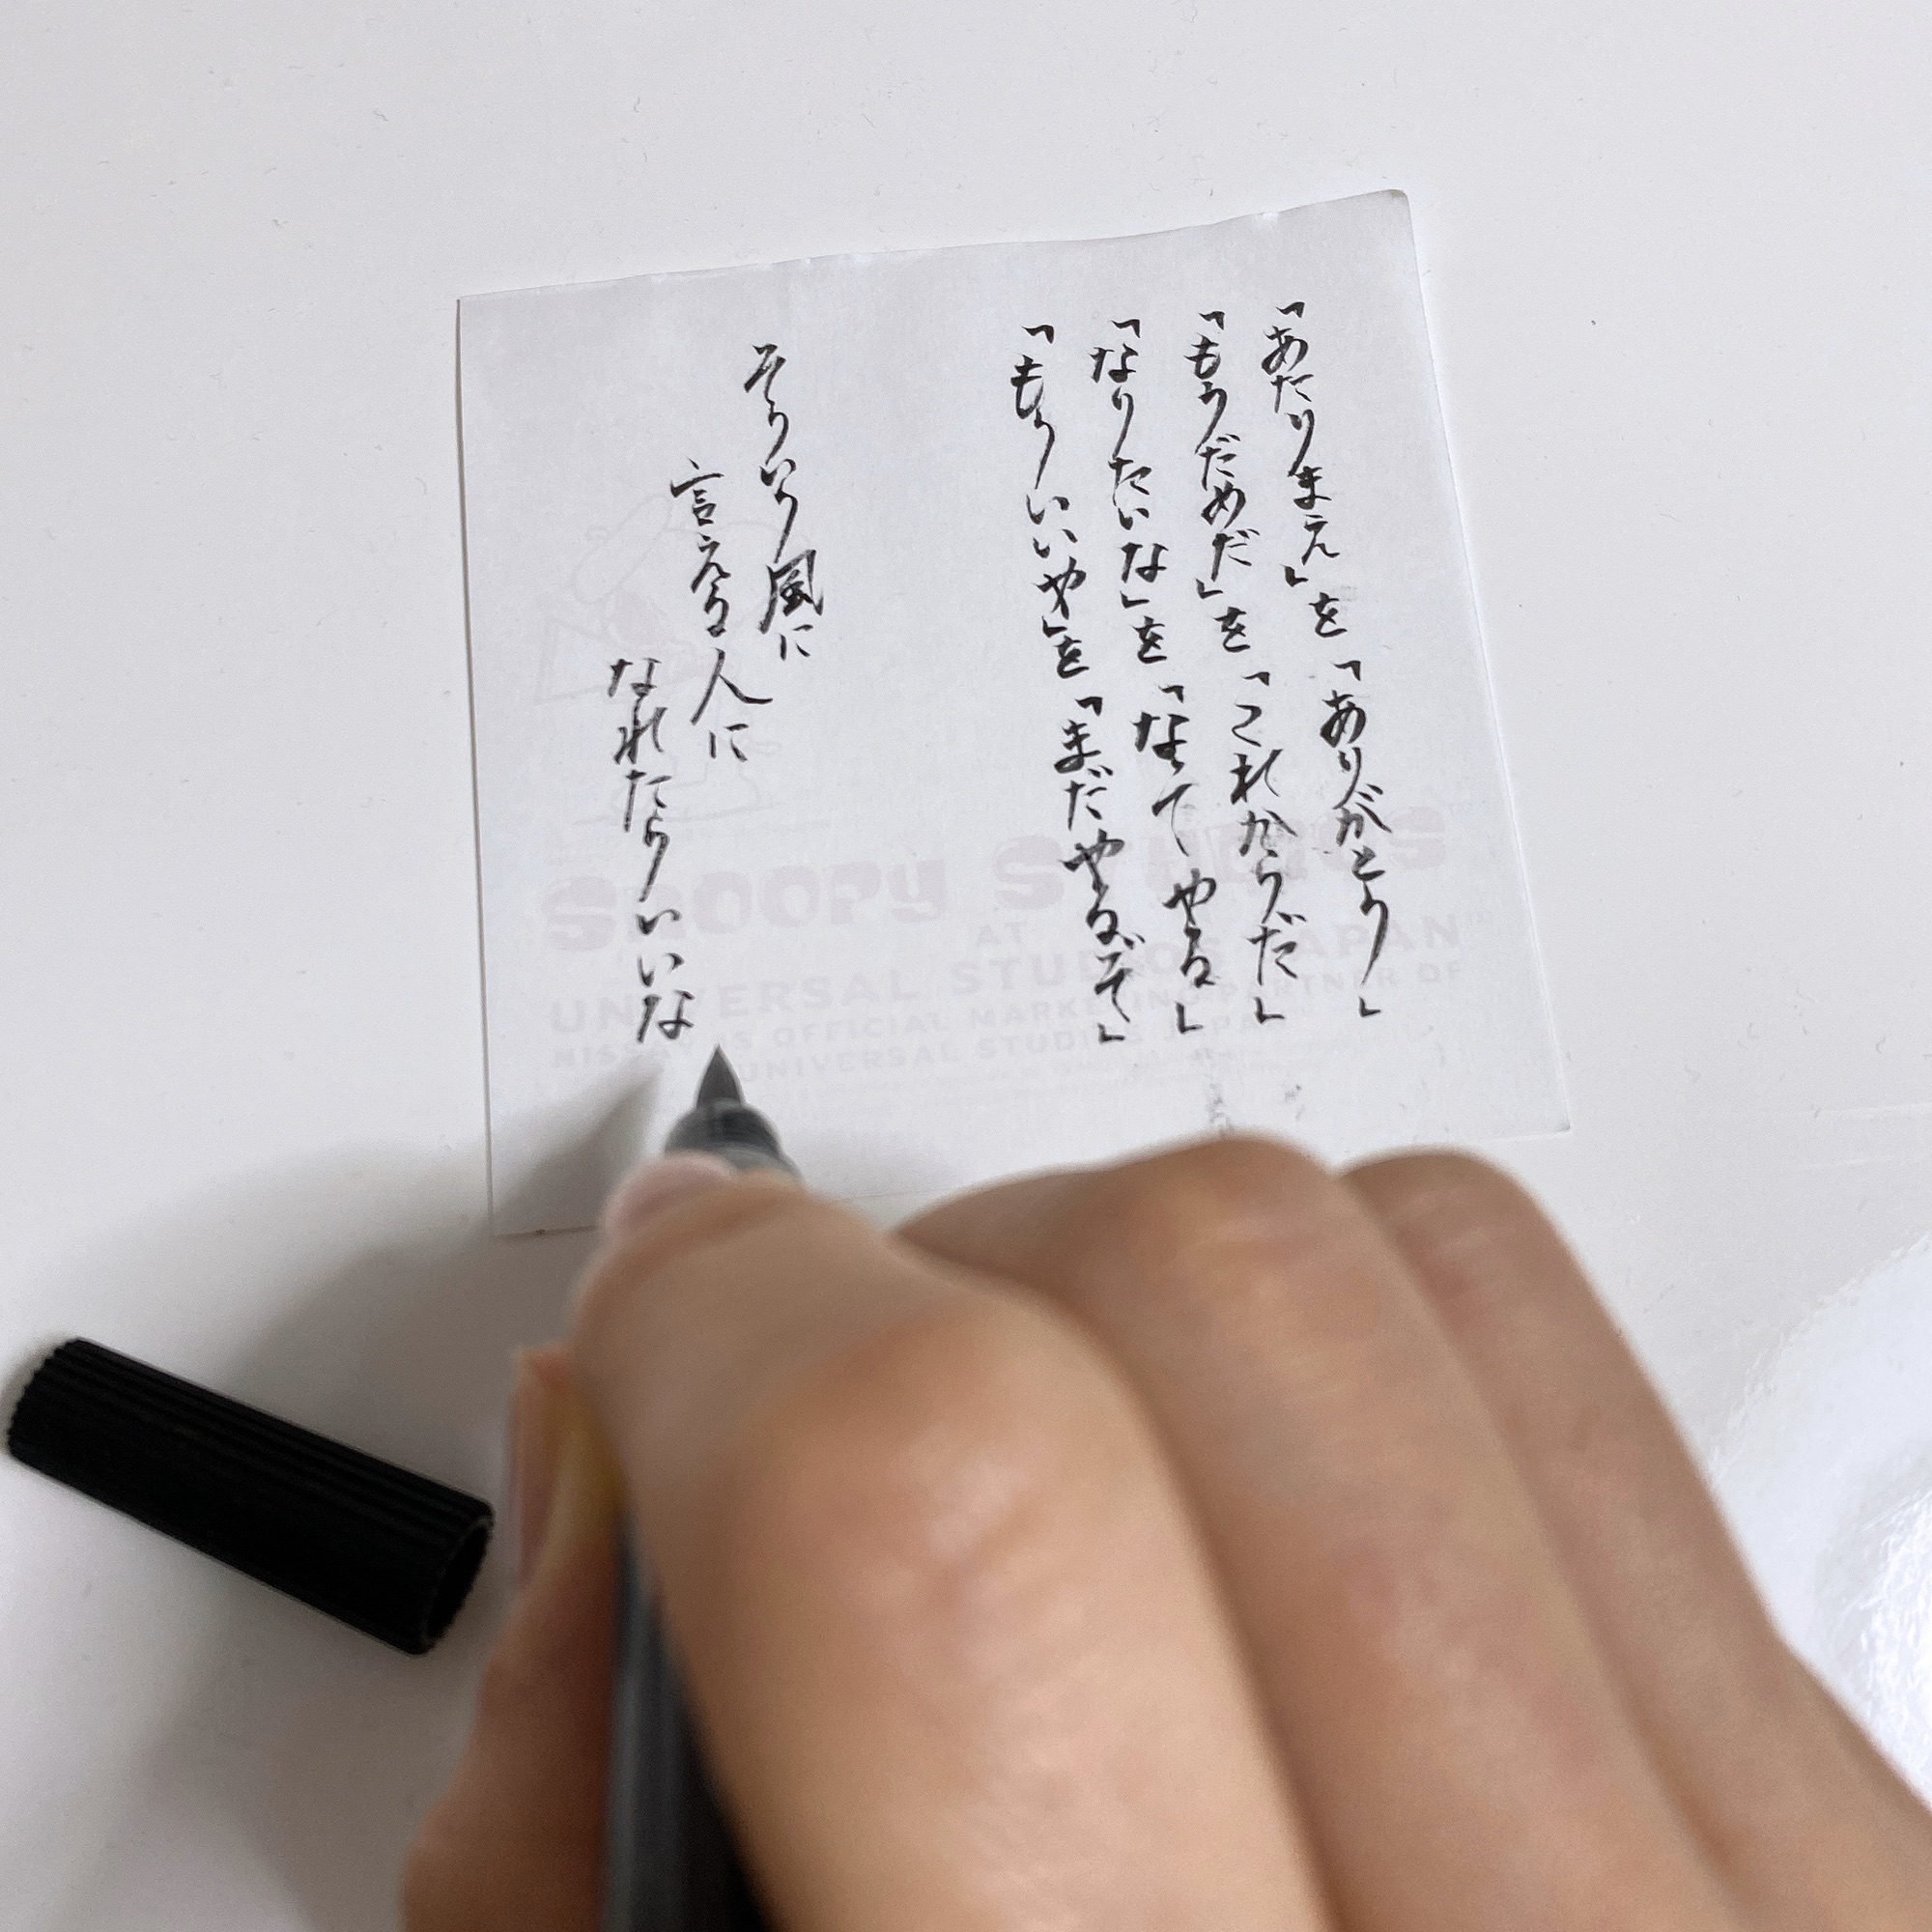 「あたりまえ」を「ありがとう」
「もうだめだ」を「これからだ」
「なりたいな」を「なってやる」
「もういいや」を「まだやるぞ」
そういう風に
言える人に
なれたらいいな
Snoopy Studios
AT
UNIVERSAL STUDIOS JAPAN
NISSAY IS OFFICIAL MARKETING PARTNER OF
UNIVERSAL STUDIOS JAPAN